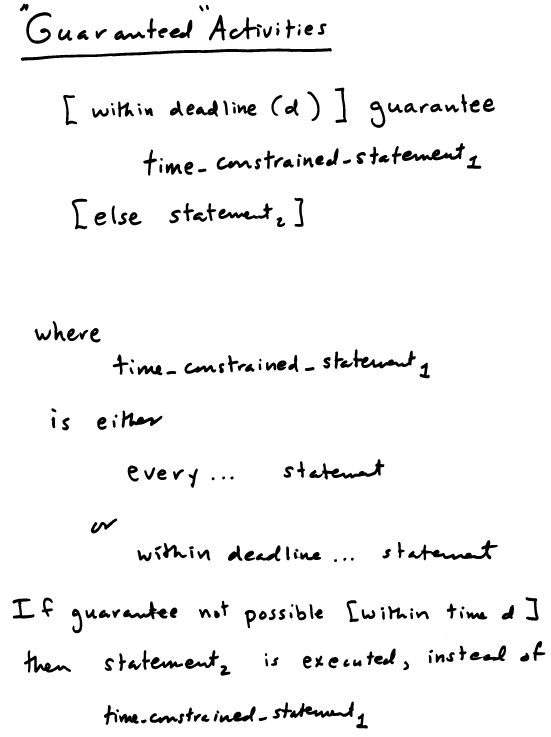 "Guaranteed" Activities
[ within deadline (d) ] guarantee
time_constrained_statement₁
[else statement₂]
where
time_constrained_statement₁
is either
every ... statement
or
within deadline ... statement
If guarantee not possible [within time d]
then statement₂ is executed, instead of
time_constrained_statement₁